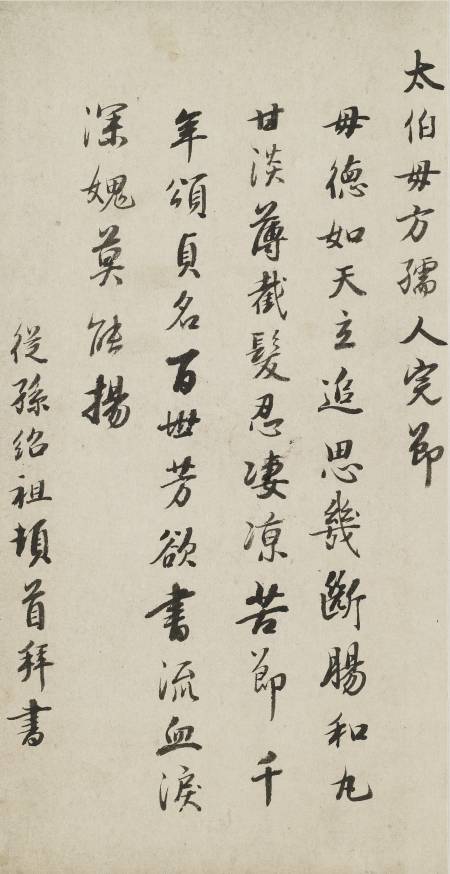 太伯母方孺人完節
母德如天立追思幾斷腸和丸
甘淡薄截髮忍凄凉苦節千
年頌貞名百世芳欲書流血淚
深愧莫能揚
從孫紹祖頓首拜書